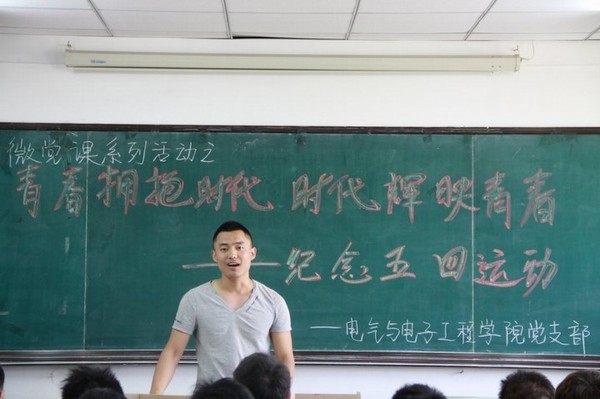 微党课系列活动之
青春拥抱时代 时代辉映青春
——纪念五四运动
——电气与电子工程学院党支部